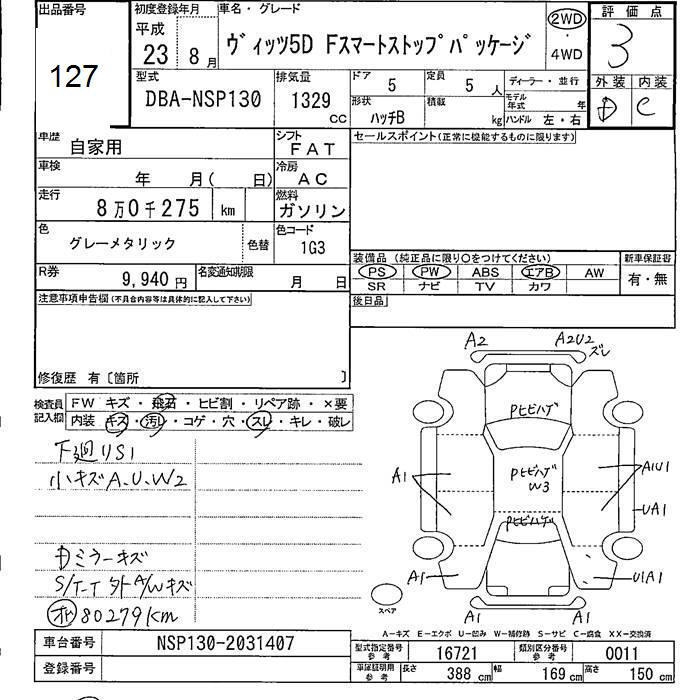 出品番号
127
初度登録年月
平成
23 8 月
車名・グレード
ヴィッツ5D Fスマートストップパッケージ
2WD
・
4WD
評価点
3
型式
DBA-NSP130
排気量
1329
CC
ドア
5
定員
5 人
ディーラー・並行
形状
ハッチB
積載
kg
モデル年式 年
ハンドル 左・右
外装 内装
D C
車歴
自家用
シフト
FAT
車検
年 月( 日)
冷房
AC
走行
8万0千275 km
燃料
ガソリン
色
グレーメタリック
色替
色コード
1G3
R券
9,940 円
名変通知期限
月 日
セールスポイント(正常に機能するものに限ります)
装備品 (純正品に限り○をつけてください)
新車保証書
PS PW ABS エアB AW
有・無
SR ナビ TV カワ
後日品
注意事項申告欄(不具合内容等は具体的に記入して下さい)
修復歴 有〔箇所 〕
検査員
記入欄
FW キズ・飛石・ヒビ割・リペア跡・×要
内装 キズ・汚レ・コゲ・穴・スレ・キレ・破レ
下廻リS1
小キズA.U.W2
ミラーキズ
外A/Wキズ
80279km
A2
A2U2
ズレ
W3
A1
A1U1
UA1
A1
U1A1
A1
A1
スペア
A-キズ E-エクボ U-凹み W-補修跡 S-サビ C-腐食 XX-交換済
車台番号
NSP130-2031407
登録番号
型式指定番号
参考
16721
類別区分番号
参考
0011
車庫証明用
参考
長さ
388 cm
幅
169 cm
高さ
150 cm